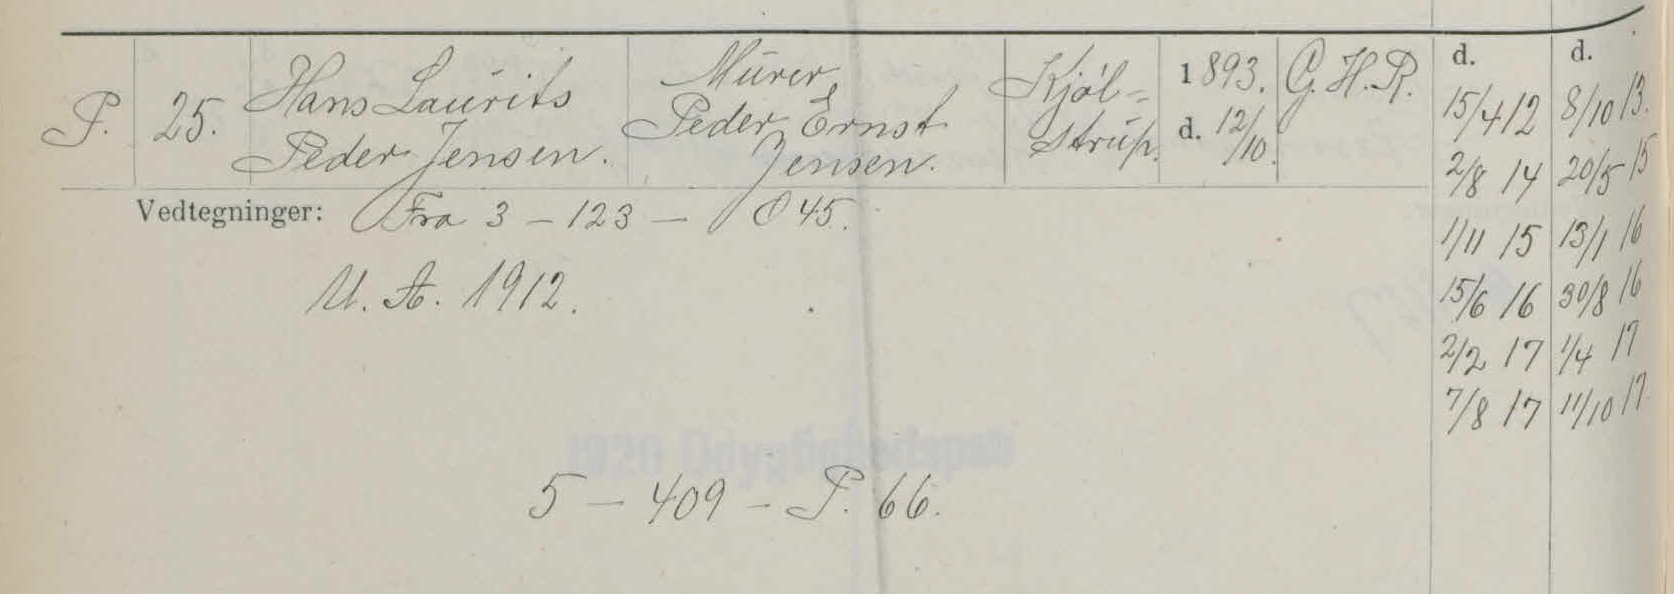 P. 25. Hans Laurits Peder Jensen. Murer, Peder Ernst Jensen. Kjøl-strup. 1893. d. 12/10. G.H.R.
d. d.
15/4 12 8/10 13.
2/8 14 20/5 15
1/11 15 13/1 16
15/6 16 30/8 16
2/2 17 1/4 17
7/8 17 11/10 17.
Vedtegninger: Fra 3 - 123 - O 45.
U. A. 1912.
5 - 409 - P. 66.